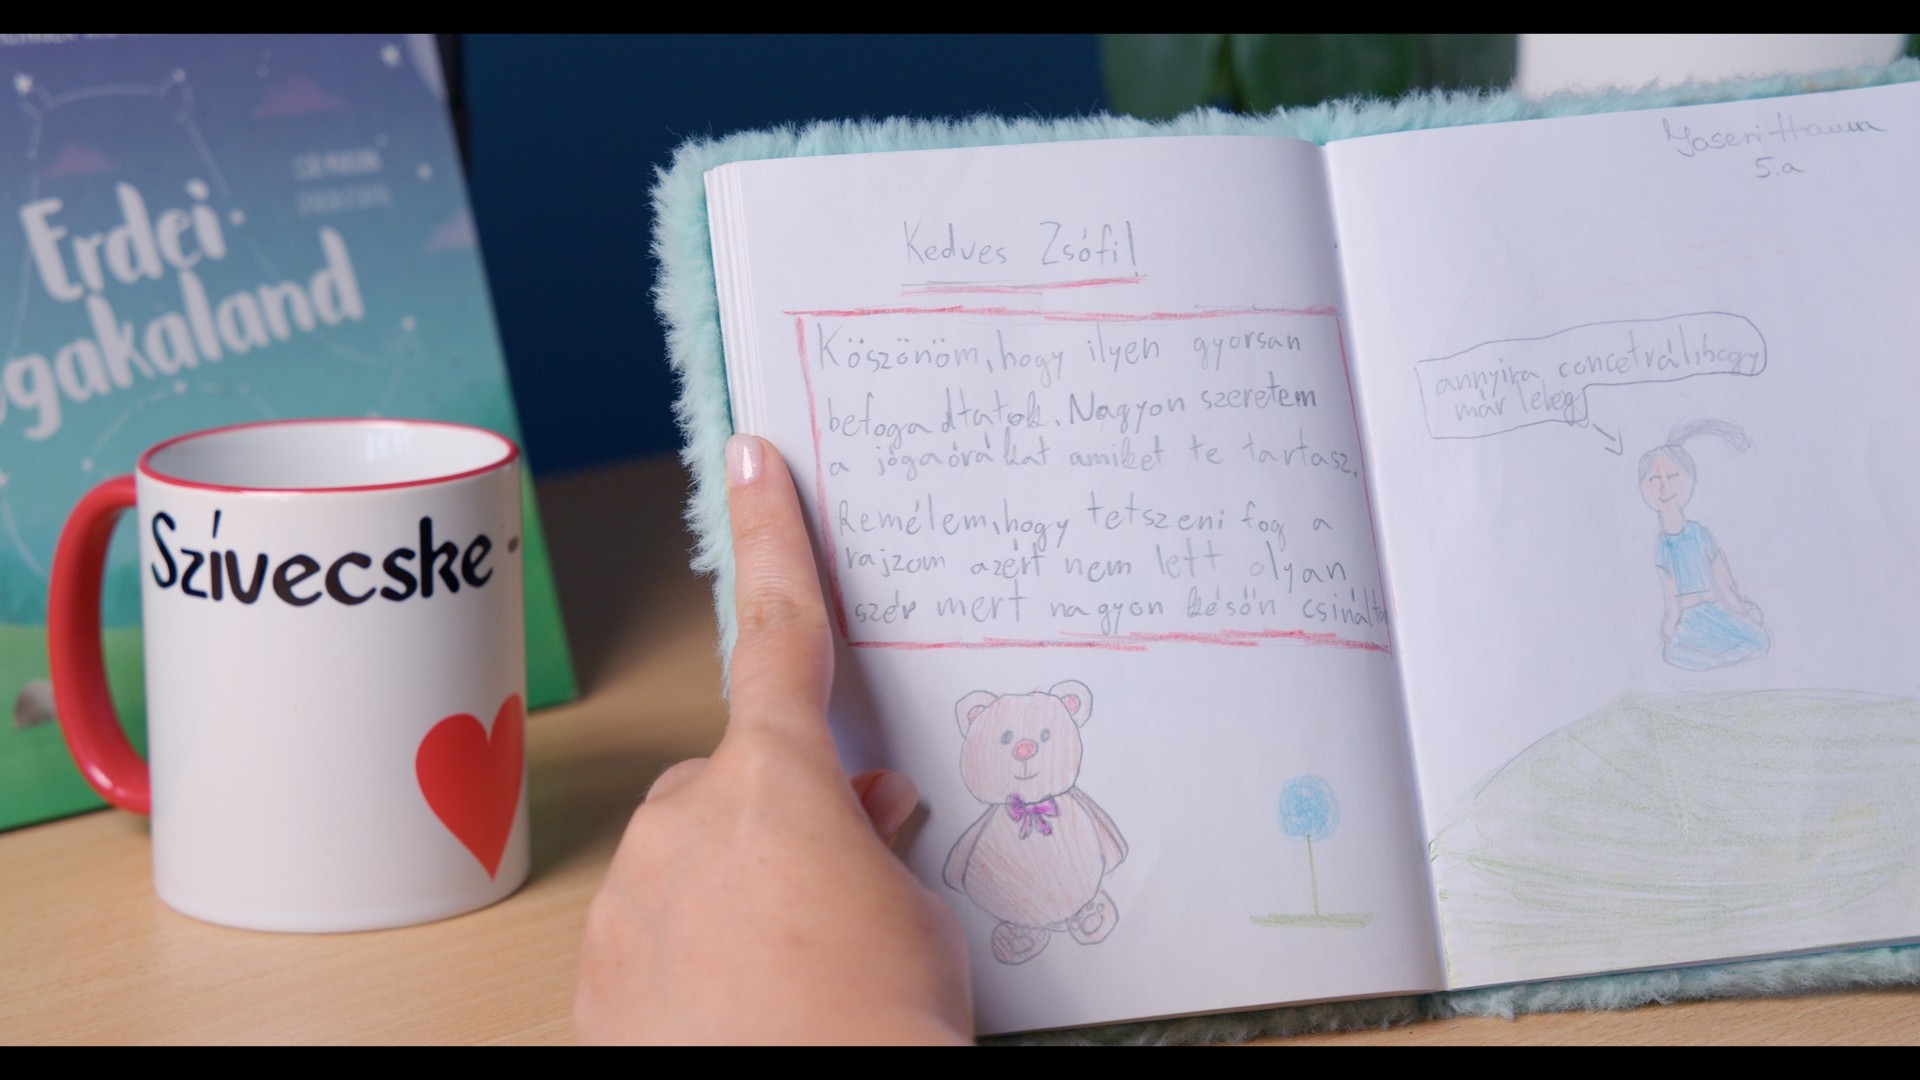 Erdei
gakaland
Szívecske-
Kedves Zsófi!
Köszönöm, hogy ilyen gyorsan
befogadtatok. Nagyon szeretem
a jógaórákat amiket te tartasz.
Remélem, hogy tetszeni fog a
rajzom azért nem lett olyan
szép mert nagyon későn csinált
5.a
annyira concetrál, hogy
már lebeg